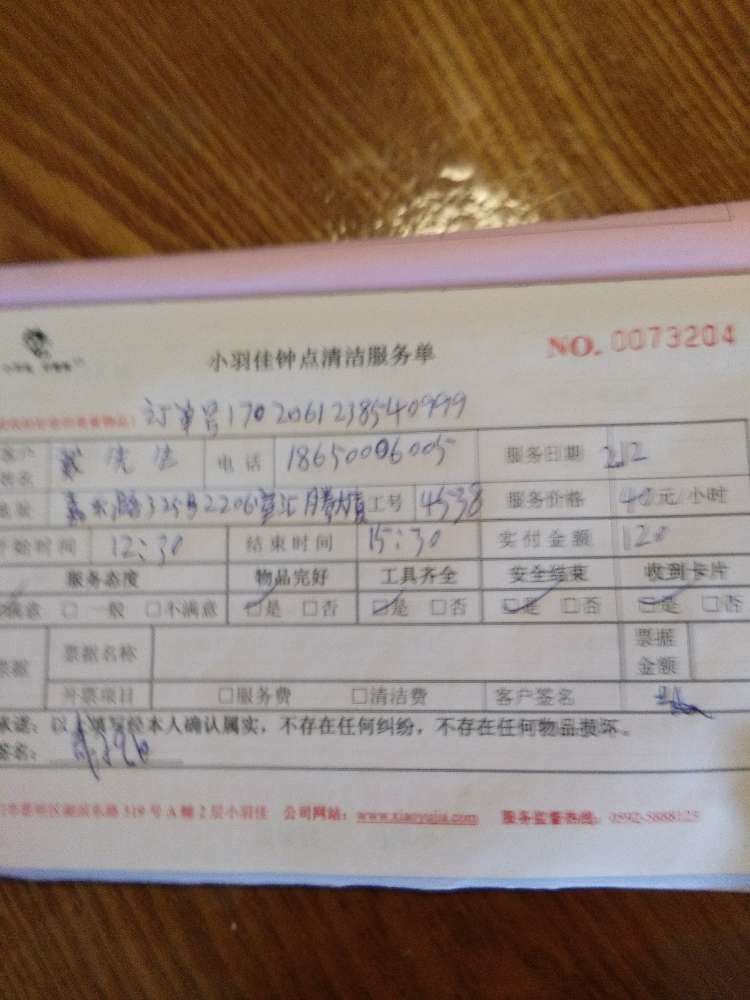 小羽佳钟点清洁服务单 NO. 0073204
订单号1702061238540999
先生 电话 18650006005 服务日期 2.12
325号2206室汇腾大厦 工号 4538 服务价格 40元/小时
开始时间 12:30 结束时间 15:30 实付金额 120
服务态度 物品完好 工具齐全 安全结束 收到卡片
满意 □一般 □不满意 □是 □否 □是 □否 □是 □否 □是 □否
票据 票据名称 票据金额
开票项目 □服务费 □清洁费 客户签名
承诺：以上填写经本人确认属实，不存在任何纠纷，不存在任何物品损坏。
签名：
319号A幢2层小羽佳 公司网站：www.xiaoyujia.com 服务监督热线：0592-5888123